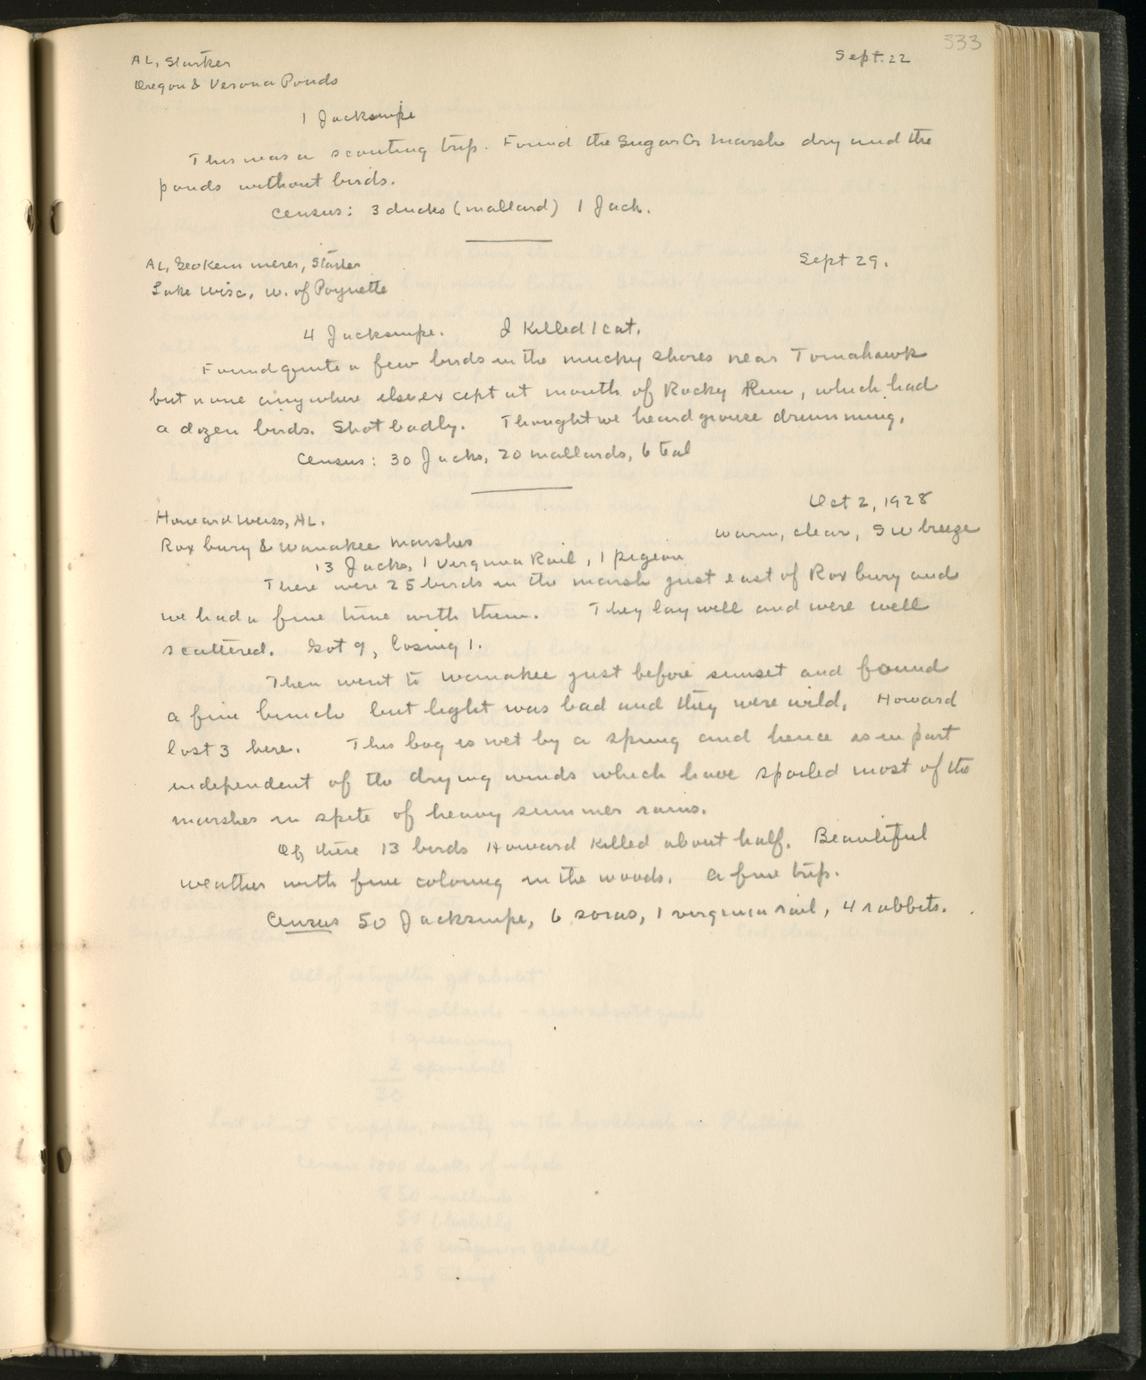 533
AL, Starker
Sept. 22
Oregon & Verona Ponds
1 Jacksnipe
This was a scouting trip. Found the Sugar Cr Marsh dry and the
ponds without birds.
Census: 3 ducks (mallard) 1 Jack.
AL, Geo Kemmerer, Starker
Sept 29.
Lake Wisc, W. of Poynette
4 Jacksnipe. I Killed 1 cat.
Found quite a few birds in the mucky shores near Tomahawk
but none anywhere else except at mouth of Rocky Run, which had
a dozen birds. Shot badly. Thought we heard grouse drumming.
Census: 30 Jacks, 20 mallards, 6 teal
Oct 2, 1928
Howard Weiss, AL.
warm, clear, SW breeze
Roxbury & Waunakee Marshes
13 Jacks, 1 Virginia Rail, 1 pigeon
There were 25 birds in the marsh just east of Roxbury and
we had a fine time with them. They lay well and were well
scattered. Got 9, losing 1.
Then went to Waunakee just before sunset and found
a fine bunch but light was bad and they were wild. Howard
lost 3 here. This bog is wet by a spring and hence is in part
independent of the drying winds which have spoiled most of the
marshes in spite of heavy summer rains.
Of these 13 birds Howard Killed about half. Beautiful
weather with fine coloring in the woods. A fine trip.
Census 50 Jacksnipe, 6 soras, 1 virginia rail, 4 rabbits.